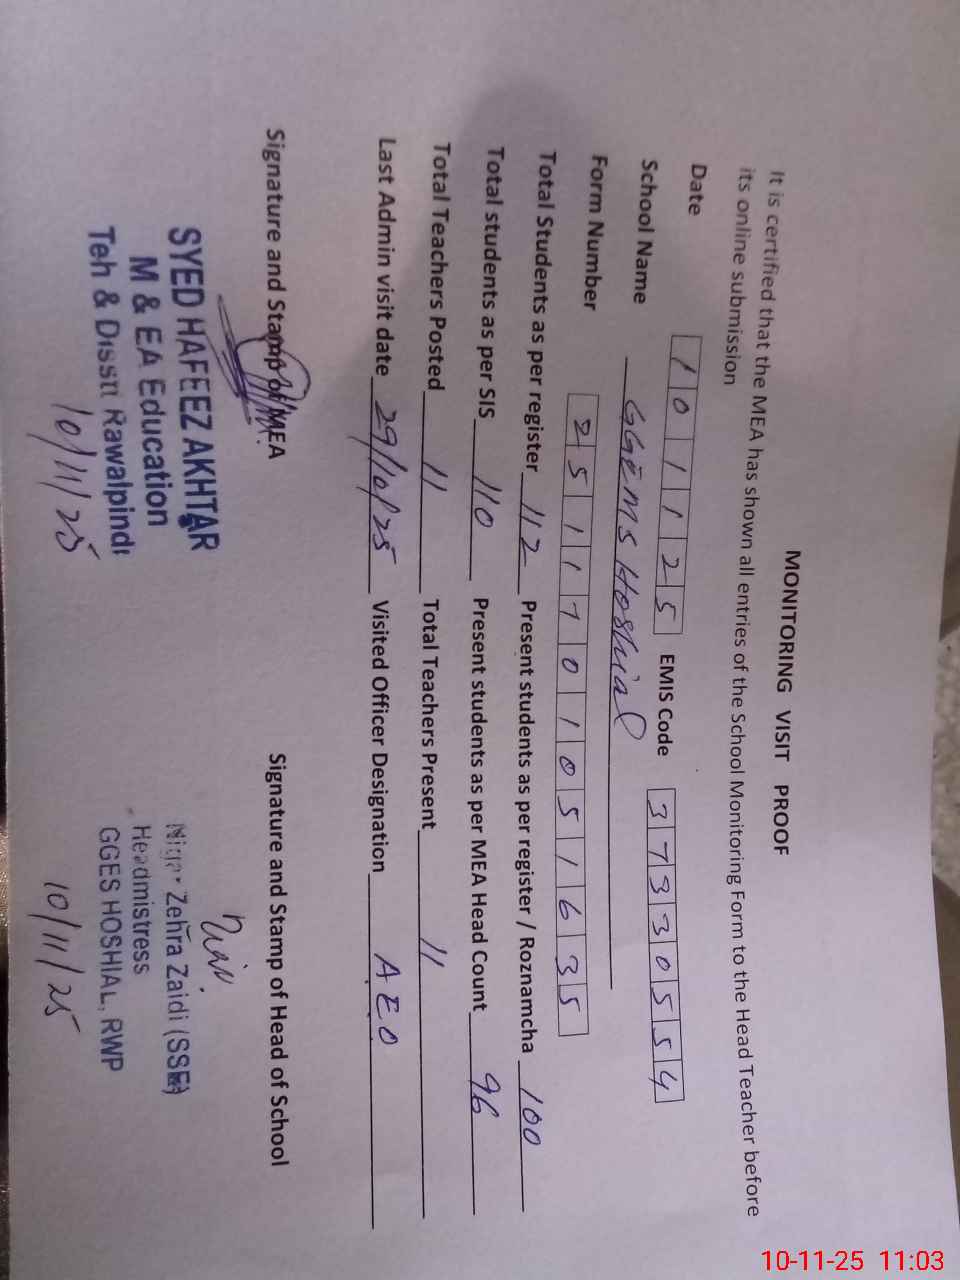 MONITORING VISIT PROOF
It is certified that the MEA has shown all entries of the School Monitoring Form to the Head Teacher before
its online submission
Date 10 11 25 EMIS Code 37330554
School Name GGEMS Hoshial
Form Number 2511701051635
Total Students as per register 112 Present students as per register / Roznamcha 100
Total students as per SIS 110 Present students as per MEA Head Count 96
Total Teachers Posted 11 Total Teachers Present 11
Last Admin visit date 29/10/25 Visited Officer Designation AEO
Signature and Stamp of MEA Signature and Stamp of Head of School
SYED HAFEEZ AKHTAR
M & EA Education
Teh & Disstt Rawalpindi
10/11/25
Nigar Zehra Zaidi (SSE)
Headmistress
GGES HOSHIAL, RWP
10/11/25
10-11-25 11:03